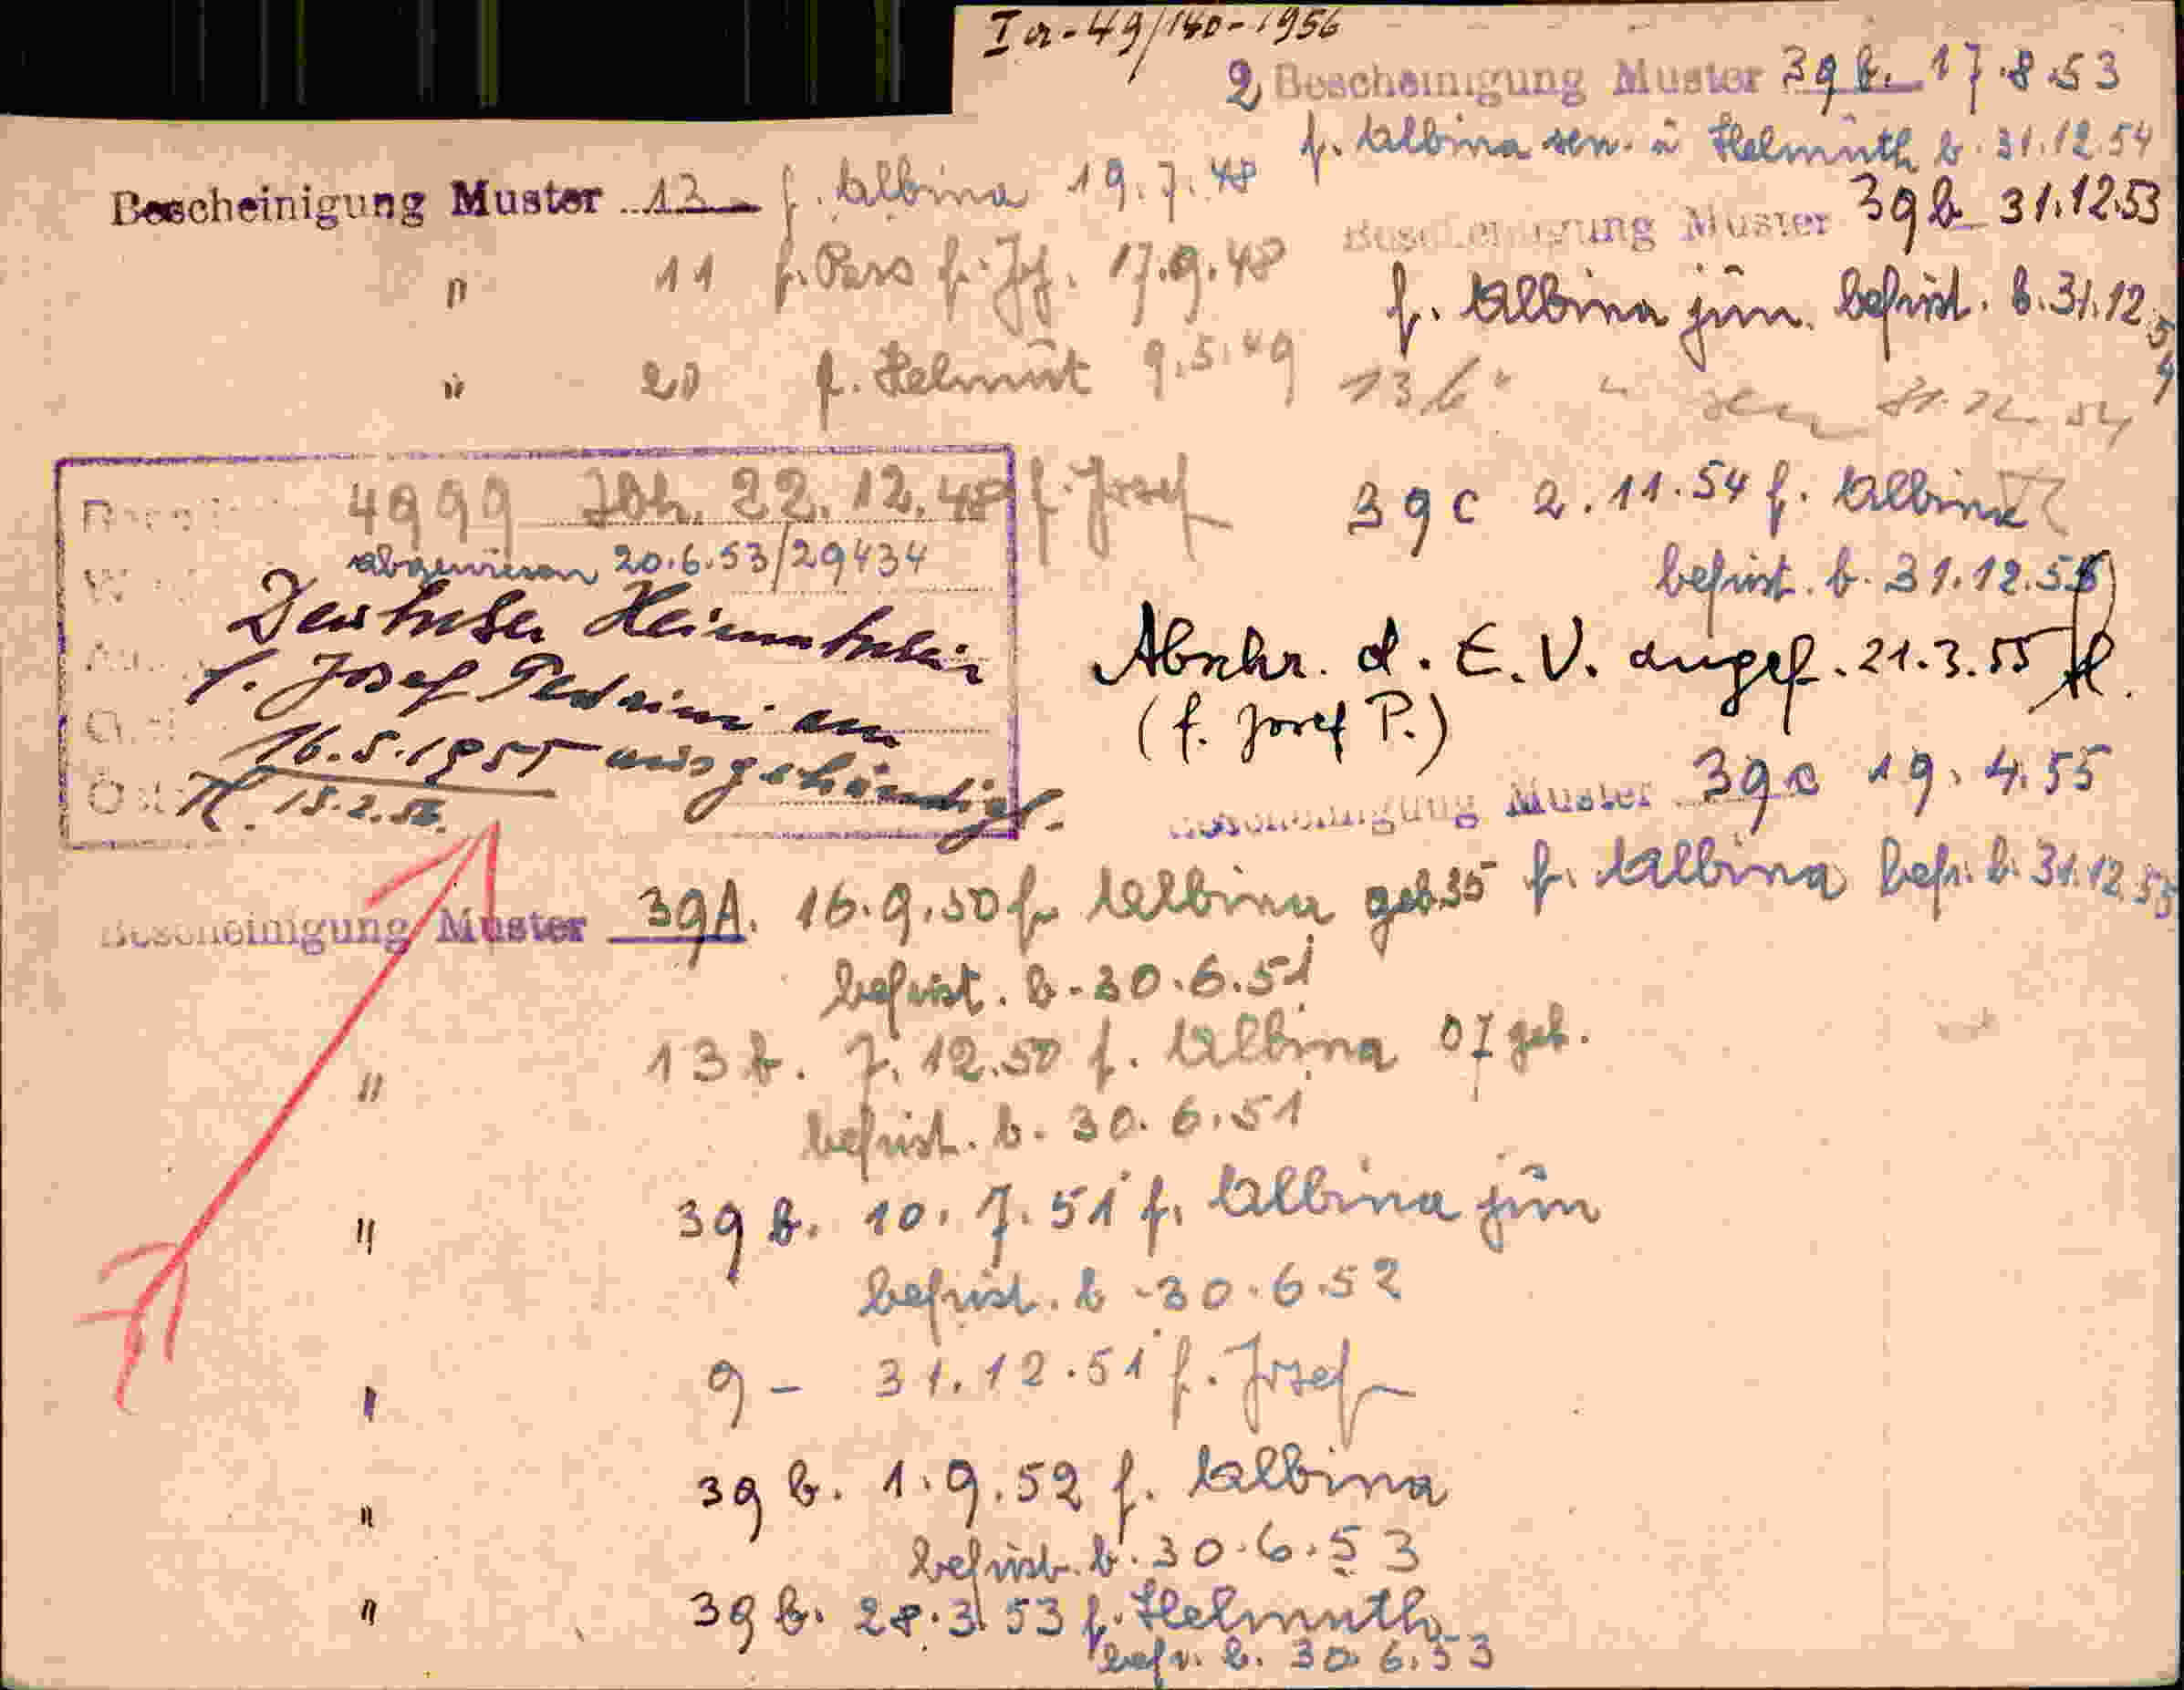 Ia-49/140-1956
2 Bescheinigung Muster 39b. 17.8.53
f. Albina sen. u Helmuth b. 31.12.54
Bescheinigung Muster 13 f. Albina 19.7.48
Bescheinigung Muster 39b 31.12.53
" 11 f. Pass f. Jof. 17.9.48
f. Albina jun. befrist. b. 31.12.54
" 20 f. Helmut 9.5.49
13b " " sen 31.12.54
4999 22.12.48 f. Josef
39c 2.11.54 f. Albina
abgewiesen 20.6.53/29434
befrist. b. 31.12.55
Deutscher Heimatschein
f. Josef Pedrini am
16.5.1955 ausgehändigt.
15.2.56.
Abschr. d. E.V. angef. 21.3.55
(f. Josef P.)
Bescheinigung Muster 39c 19.4.55
f. Albina befr. b. 31.12.55
Bescheinigung Muster 39A. 16.9.50 f. Albina geb. 35
befrist. b. 30.6.51
" 13b. 7.12.50 f. Albina 07 geb.
befrist. b. 30.6.51
" 39b. 10.7.51 f. Albina jun
befrist. b. 30.6.52
" 9 - 31.12.51 f. Josef
" 39b. 1.9.52 f. Albina
befrist. b. 30.6.53
" 39b. 28.3.53 f. Helmuth
befr. b. 30.6.53